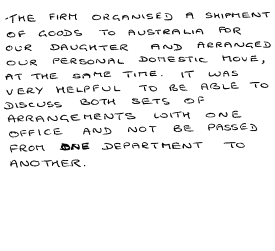 "THE FIRM ORGANISED A SHIPMENT
OF GOODS TO AUSTRALIA FOR
OUR DAUGHTER AND ARRANGED
OUR PERSONAL DOMESTIC MOVE,
AT THE SAME TIME. IT WAS
VERY HELPFUL TO BE ABLE TO
DISCUSS BOTH SETS OF
ARRANGEMENTS WITH ONE
OFFICE AND NOT BE PASSED
FROM ONE DEPARTMENT TO
ANOTHER.